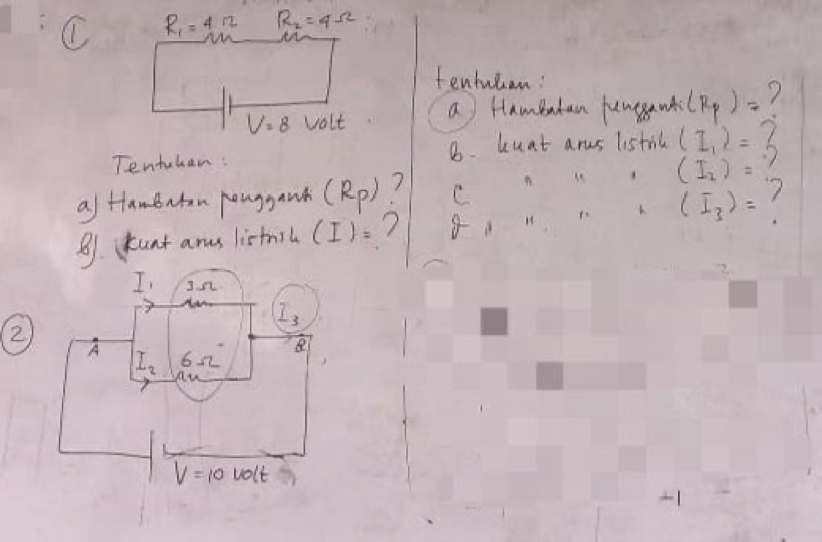 ①
R₁ = 4 Ω R₂ = 4 Ω
V = 8 Volt
Tentukan :
a) Hambatan pengganti (Rp) ?
b). Kuat arus listrik (I) = ?
②
I₁ 3 Ω
I₃
A
B
I₂ 6 Ω
V = 10 volt
tentukan :
a Hambatan pengganti (Rp) = ?
b. kuat arus listrik (I₁) = ?
c " " " (I₂) = ?
d " " " " (I₃) = ?